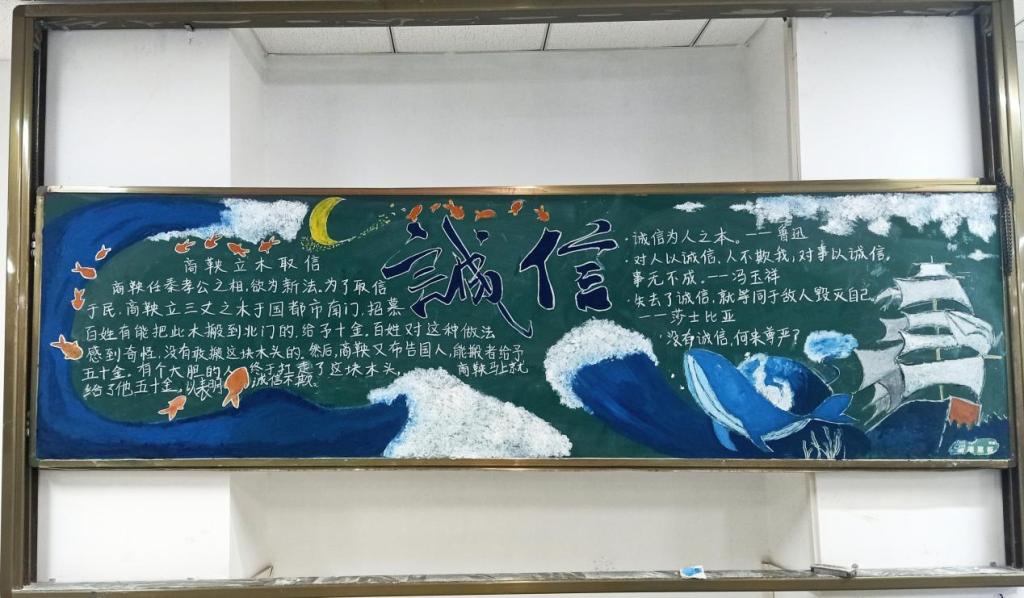 商鞅立木取信
商鞅任秦孝公之相,欲为新法,为了取信
于民,商鞅立三丈之木于国都市南门,招募
百姓有能把此木搬到北门的,给予十金。百姓对这种做法
感到奇怪,没有敢搬这块木头的。然后,商鞅又布告国人,能搬者给予
五十金。有个大胆的人终于扛走了这块木头,商鞅马上就
给了他五十金,以表明诚信不欺。
誠信
·诚信为人之本。——鲁迅
·对人以诚信,人不欺我;对事以诚信,
事无不成。——冯玉祥
·失去了诚信,就等同于敌人毁灭自己
——莎士比亚
·没有诚信,何来尊严?